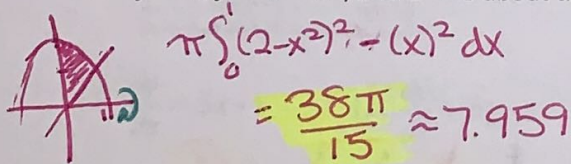 π∫₀¹(2-x²)² - (x)² dx
= 38π/15 ≈ 7.959